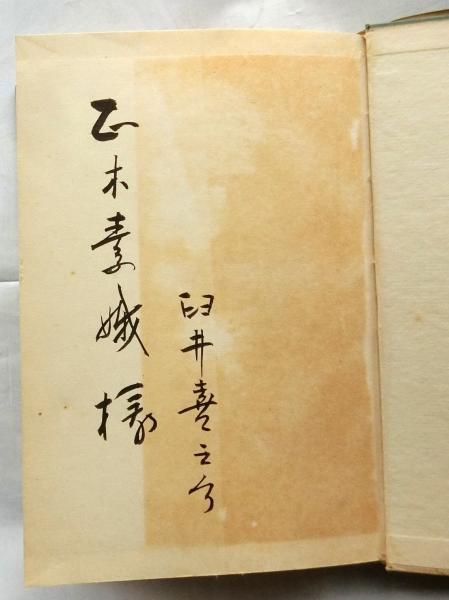 臼井喜之介
正木素娥様